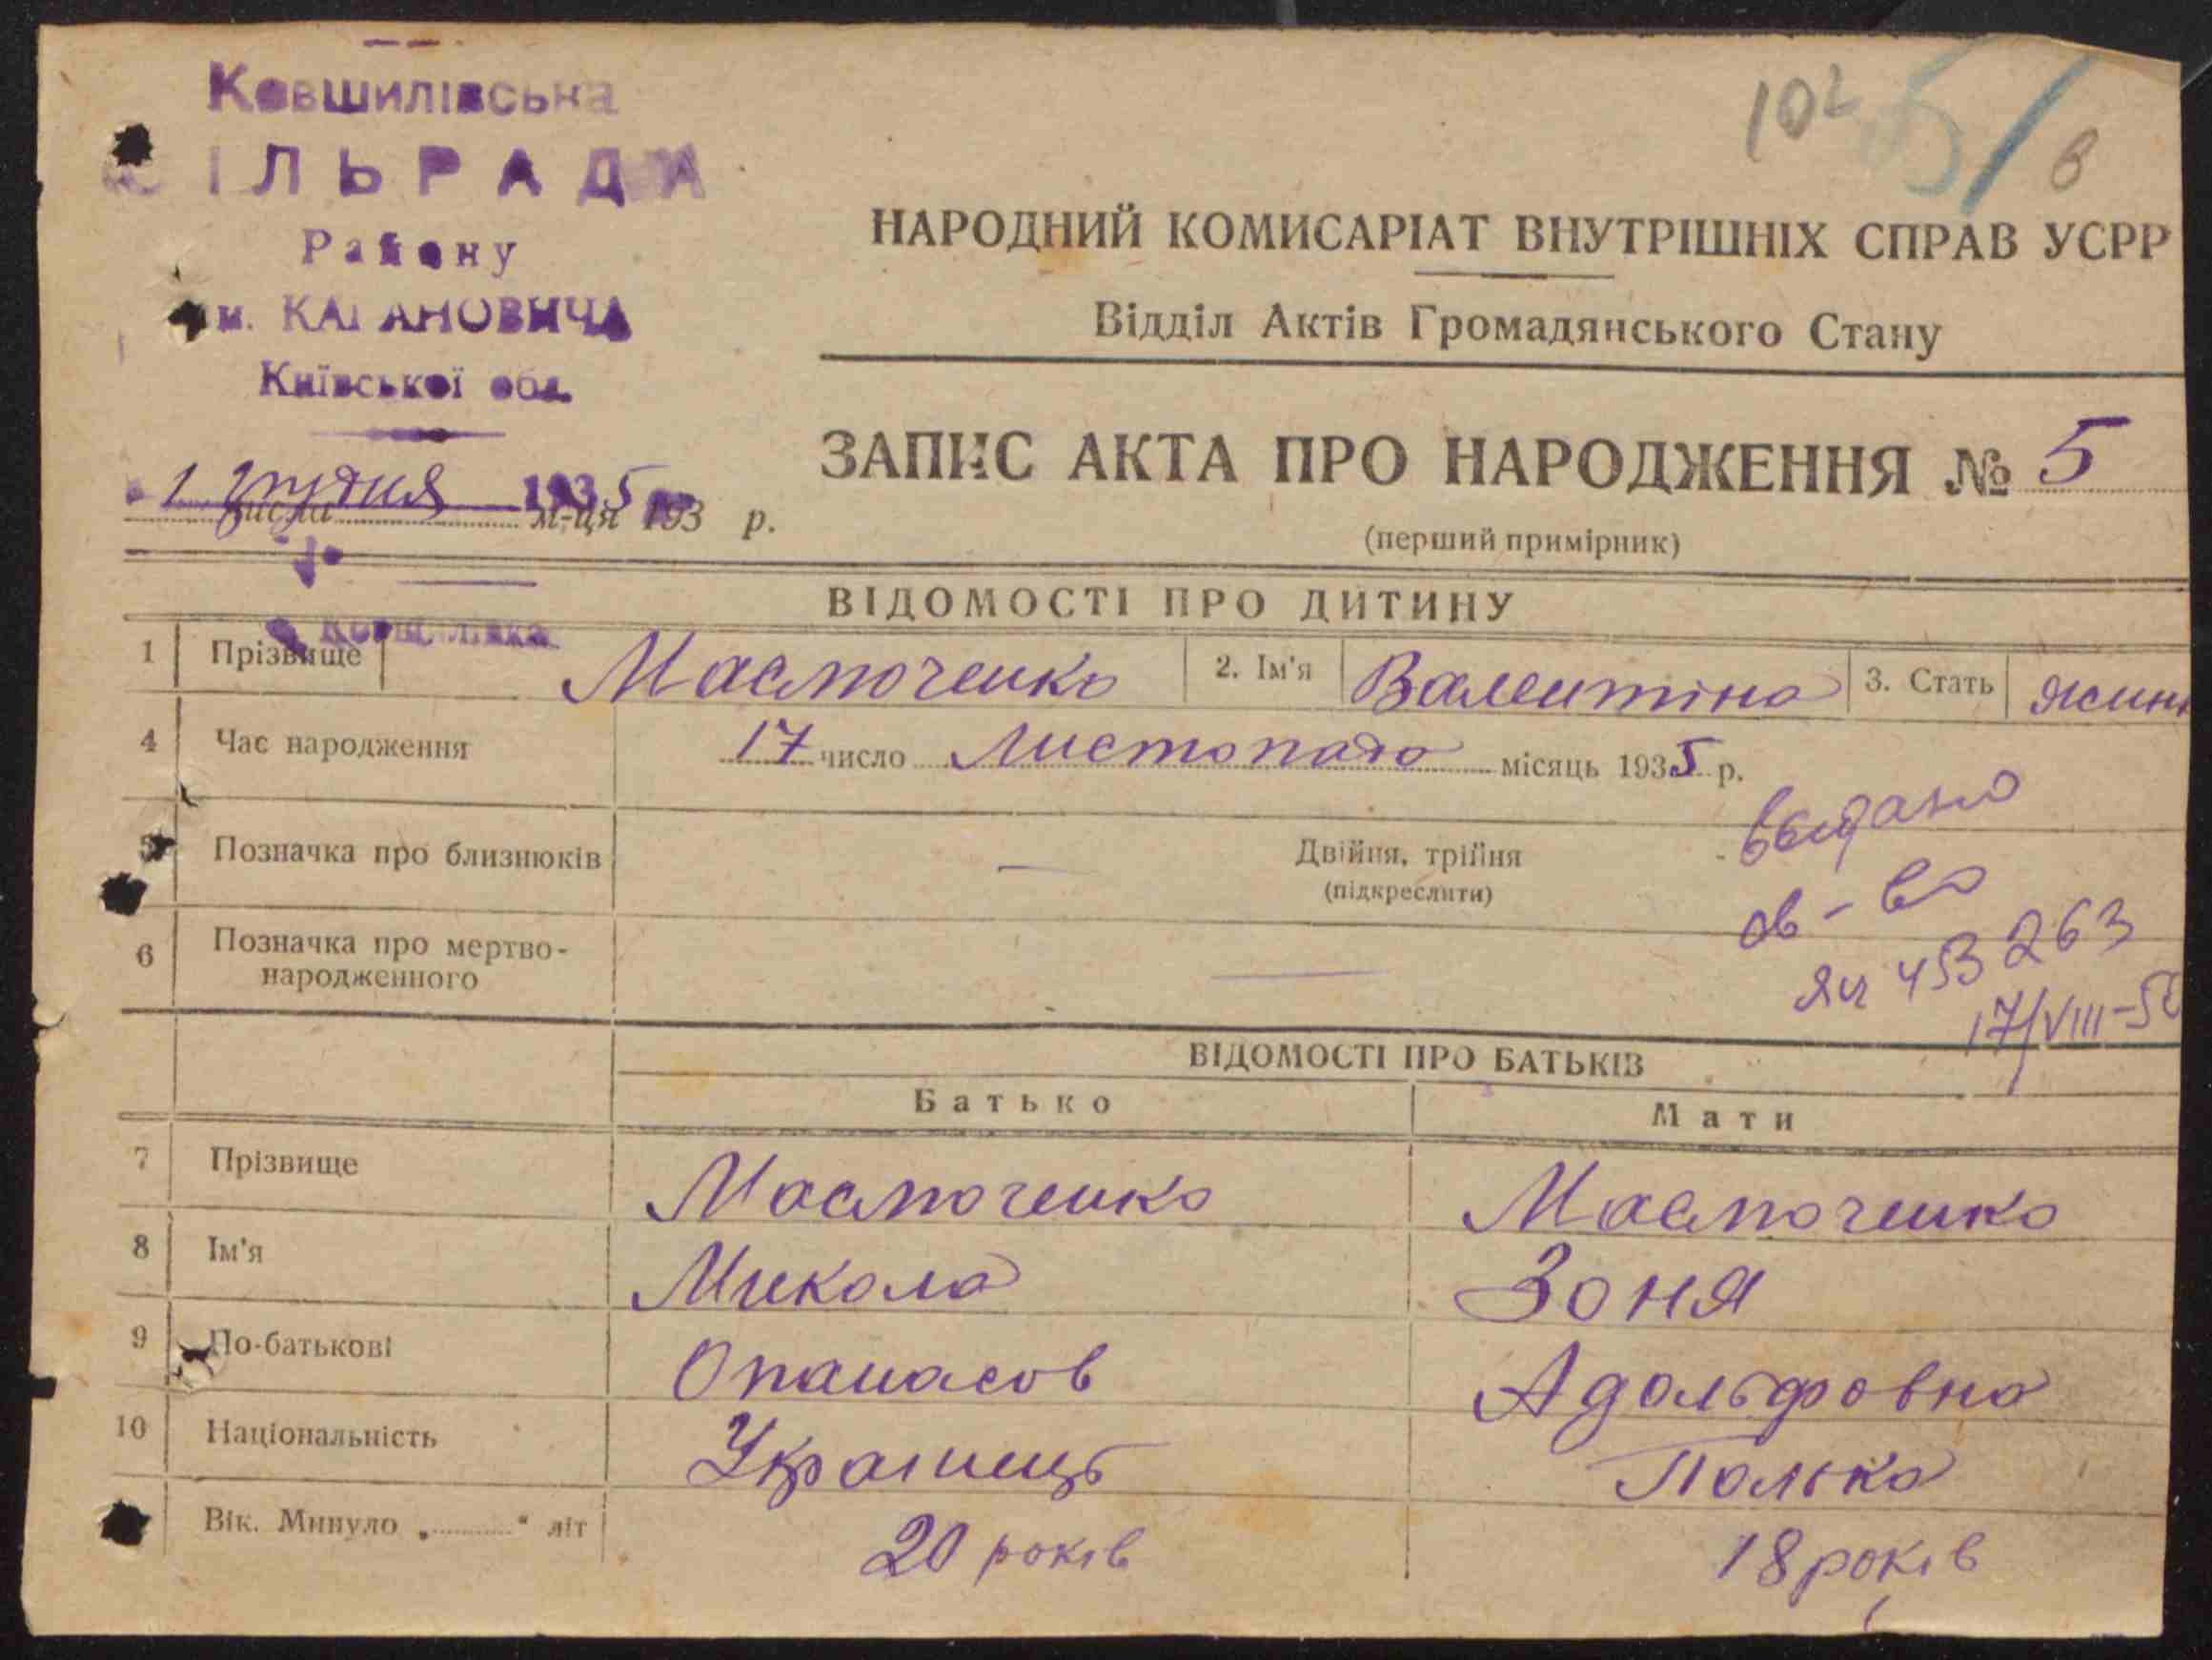 Ковшилівська
СІЛЬРАДА
Району
ім. КАГАНОВИЧА
Київської обл.
102 5/в
НАРОДНИЙ КОМИСАРІАТ ВНУТРІШНІХ СПРАВ УСРР
Відділ Актів Громадянського Стану
ЗАПИС АКТА ПРО НАРОДЖЕННЯ № 5
(перший примірник)
1 грудня 1935
числа м-ця 193 р.
с. Ковшилівка
ВІДОМОСТІ ПРО ДИТИНУ
1 Прізвище Масточенко 2. Ім'я Валентіна 3. Стать жін
4 Час народження 17 число Листопада місяць 1935 р.
5 Позначка про близнюків — Двійня, трійня
(підкреслити)
6 Позначка про мертво-
народженного —
выдано
св-во
ЯЧ 453263
17/VIII-5
ВІДОМОСТІ ПРО БАТЬКІВ
Батько Мати
7 Прізвище Масточенко Масточенко
8 Ім'я Микола Зоня
9 По-батькові Опанасов Адольфовна
10 Національність Украінець Полька
Вік. Минуло „ “ літ 20 років 18 років